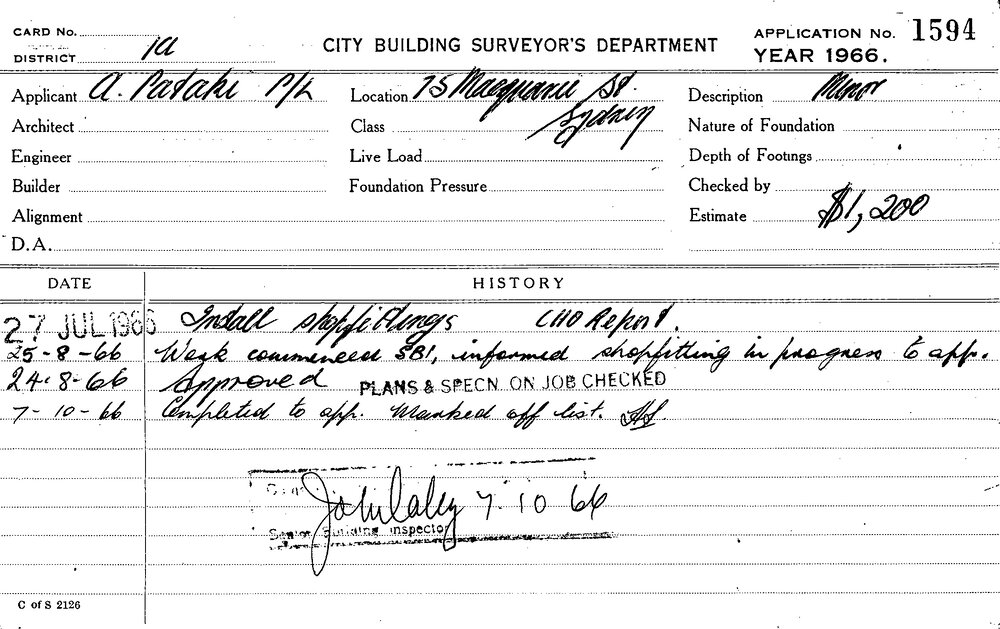 CARD No.
DISTRICT 1a
CITY BUILDING SURVEYOR'S DEPARTMENT
APPLICATION No. 1594
YEAR 1966.
Applicant A. Pataki P/L Location 75 Macquarie St. Sydney Description Minor
Architect Class Nature of Foundation
Engineer Live Load Depth of Footings
Builder Foundation Pressure Checked by
Alignment Estimate $1,200
D.A.
DATE HISTORY
27 JUL 1966 Install shopfittings CHO Report.
25-8-66 Work commenced SBI, informed shopfitting in progress to app.
24-8-66 Approved PLANS & SPECN. ON JOB CHECKED
7-10-66 Completed to app. Marked off list.
7 10 66
Senior Building Inspector
C of S 2126